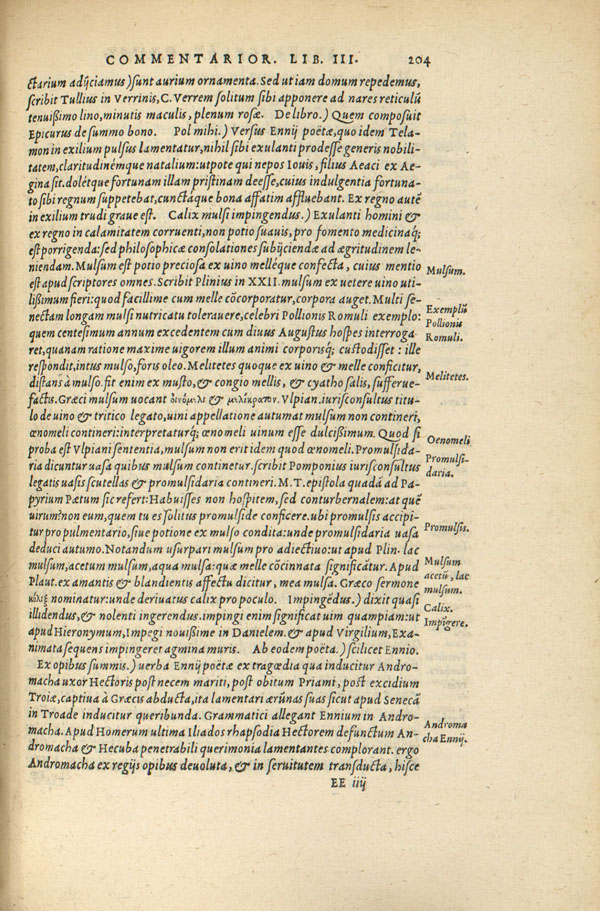 COMMENTARIOR. LIB. III. 204
ctarium adijciamus) sunt aurium ornamenta. Sed ut iam domum repedemus,
scribit Tullius in Verrinis, C. Verrem solitum sibi apponere ad nares reticulū
tenuißimo lino, minutis maculis, plenum rosæ. De libro.) Quem composuit
Epicurus de summo bono. Pol mihi.) Versus Ennij poëtæ, quo idem Tela-
mon in exilium pulsus lamentatur, nihil sibi exulanti prodesse generis nobili-
tatem, claritudinémque natalium: utpote qui nepos Iouis, filius Aeaci ex Ae-
gina sit. dolétque fortunam illam pristinam deesse, cuius indulgentia fortuna-
to sibi regnum suppetebat, cunctáque bona affatim affluebant. Ex regno autē
in exilium trudi graue est. Calix mulsi impingendus.) Exulanti homini &
ex regno in calamitatem corruenti, non potio suauis, pro fomento medicinaq́;
est porrigenda: sed philosophicæ consolationes subijciendæ ad ægritudinem le-
niendam. Mulsum est potio preciosa ex uino melléque confecta, cuius mentio
est apud scriptores omnes. Scribit Plinius in XXII. mulsum ex uetere uino uti-
lißimum fieri: quod facillime cum melle cōcorporatur, corpora auget. Multi se-
nectam longam mulsi nutricatu tolerauere, celebri Pollionis Romuli exemplo:
quem centesimum annum excedentem cum diuus Augustus hospes interroga
ret, quanam ratione maxime uigorem illum animi corporisq́; custodisset: ille
respondit, intus mulso, foris oleo. Melitetes quoque ex uino & melle conficitur,
distans à mulso. fit enim ex musto, & congio mellis, & cyatho salis, sufferue-
factis. Græci mulsum uocant οἰνόμελι & μελίκρατον. Vlpian. iurisconsultus titu-
lo de uino & tritico legato, uini appellatione autumat mulsum non contineri,
œnomeli contineri: interpretaturq́; œnomeli uinum esse dulcißimum. Quod si
proba est Vlpiani sententia, mulsum non erit idem quod œnomeli. Promulsida-
ria dicuntur uasa quibus mulsum continetur. scribit Pomponius iurisconsultus
legatis uasis scutellas & promulsidaria contineri. M. T. epistola quadā ad Pa-
pyrium Pætum sic refert: Habuisses non hospitem, sed conturbernalem: at quē
uirum? non eum, quem tu es solitus promulside conficere. ubi promulsis accipi-
tur pro pulmentario, siue potione ex mulso condita: unde promulsidaria uasa
deduci autumo. Notandum usurpari mulsum pro adiectiuo: ut apud Plin. lac
mulsum, acetum mulsum, aqua mulsa: quæ melle cōcinnata significātur. Apud
Plaut. ex amantis & blandientis affectu dicitur, mea mulsa. Græco sermone
κύλιξ nominatur: unde deriuatus calix pro poculo. Impingēdus.) dixit quasi
illidendus, & nolenti ingerendus. impingi enim significat uim quampiam: ut
apud Hieronymum, Impegi nouißime in Danielem. & apud Virgilium, Exa-
nimata sequens impingeret agmina muris. Ab eodem poëta.) scilicet Ennio.
Ex opibus summis.) uerba Ennij poëtæ ex tragœdia qua inducitur Andro-
macha uxor Hectoris post necem mariti, post obitum Priami, post excidium
Troiæ, captiua à Græcis abducta, ita lamentari ærūnas suas sicut apud Senecā
in Troade inducitur queribunda. Grammatici allegant Ennium in Andro-
macha. Apud Homerum ultima Iliados rhapsodia Hectorem defunctum An-
dromacha & Hecuba penetrabili querimonia lamentantes complorant. ergo
Andromacha ex regijs opibus deuoluta, & in seruitutem transducta, hisce
EE iiij
Mulsum.
Exemplū
Pollionis
Romuli.
Melitetes.
Oenomeli
Promulsi-
daria.
Promulsis.
Mulsum
acetū, lac
mulsum.
Calix.
Impīgere.
Androma
cha Ennij.